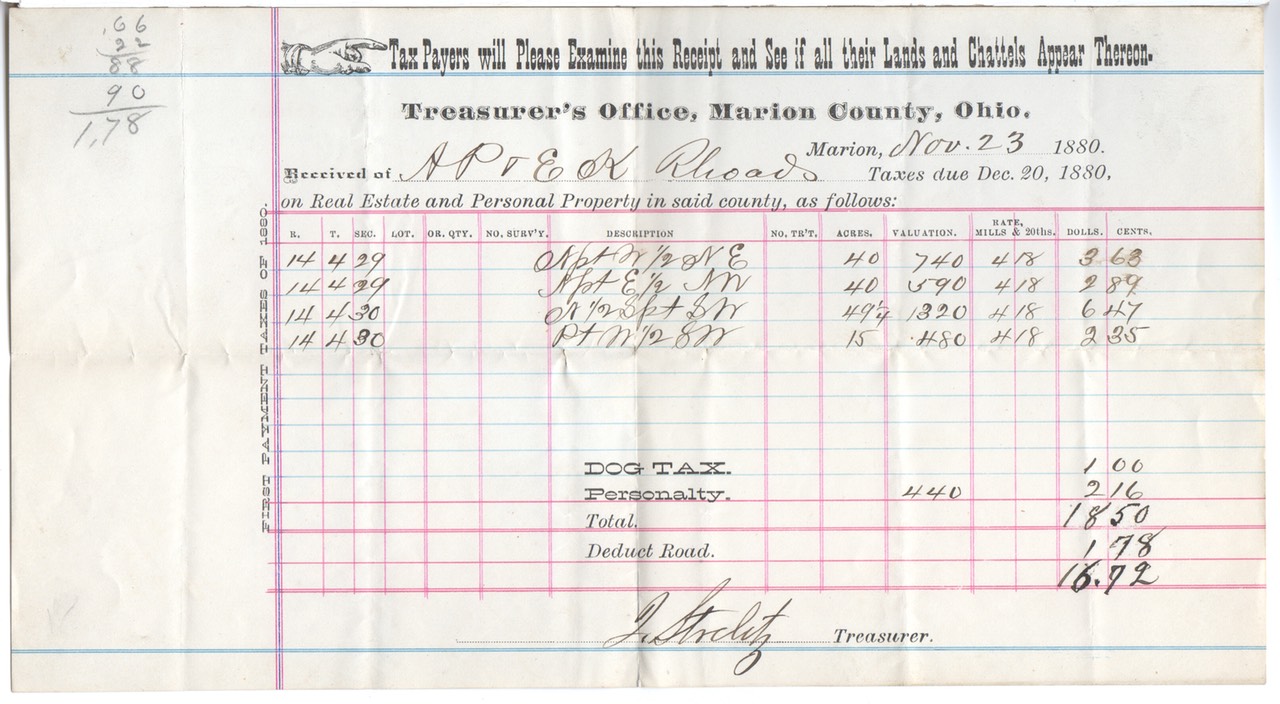 .66
22
90
1,78
Tax Payers will Please Examine this Receipt and See if all their Lands and Chattels Appear Thereon.
Treasurer's Office, Marion County, Ohio.
Marion, Nov. 23 1880.
Received of A P & E K Rhoads Taxes due Dec. 20, 1880,
on Real Estate and Personal Property in said county, as follows:
FIRST PAYMENT TAXES OF 1880.
R. T. SEC. LOT. OR. QTY. NO. SURV'Y. DESCRIPTION NO. TR'T. ACRES. VALUATION. RATE, MILLS & 20ths. DOLLS. CENTS.
14 4 29 Npt W 1/2 NE 40 740 4 18 3 63
14 4 29 Npt E 1/2 NW 40 590 4 18 2 89
14 4 30 N 1/2 Spt SW 49 1/4 1320 4 18 6 47
14 4 30 Pt W 1/2 SW 15 480 4 18 2 35
DOG TAX. 1 00
Personalty. 440 2 16
Total. 18 50
Deduct Road. 1 78
16.72
J. Strelitz Treasurer.